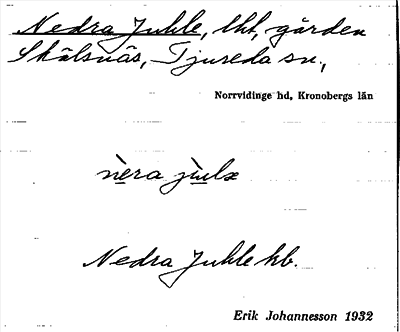 Nedra Juhle, lht, gården
Skälsnäs, Tjureda sn.,
Norrvidinge hd, Kronobergs län
nèra jùlæ
Nedra Juhle hb.
Erik Johannesson 1932